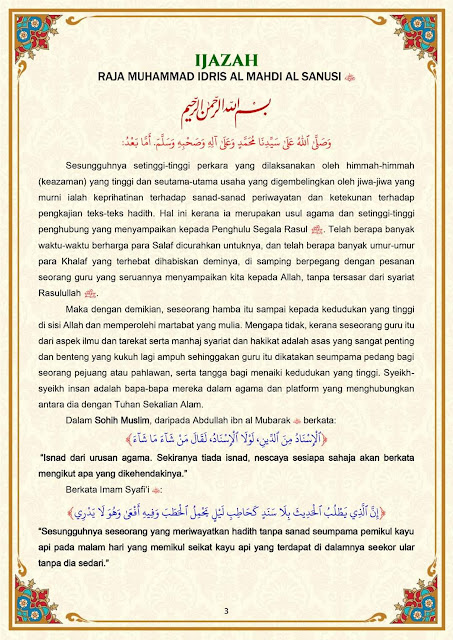 IJAZAH
RAJA MUHAMMAD IDRIS AL MAHDI AL SANUSI
بسم الله الرحمن الرحيم
وَصَلَّى اللهُ عَلَى سَيِّدِنَا مُحَمَّدٍ وَعَلَى آلِهِ وَصَحْبِهِ وَسَلَّمَ. أَمَّا بَعْدُ:
Sesungguhnya setinggi-tinggi perkara yang dilaksanakan oleh himmah-himmah
(keazaman) yang tinggi dan seutama-utama usaha yang digembelingkan oleh jiwa-jiwa yang
murni ialah keprihatinan terhadap sanad-sanad periwayatan dan ketekunan terhadap
pengkajian teks-teks hadith. Hal ini kerana ia merupakan usul agama dan setinggi-tinggi
penghubung yang menyampaikan kepada Penghulu Segala Rasul ﷺ. Telah berapa banyak
waktu-waktu berharga para Salaf dicurahkan untuknya, dan telah berapa banyak umur-umur
para Khalaf yang terhebat dihabiskan deminya, di samping berpegang dengan pesanan
seorang guru yang seruannya menyampaikan kita kepada Allah, tanpa tersasar dari syariat
Rasulullah ﷺ.
Maka dengan demikian, seseorang hamba itu sampai kepada kedudukan yang tinggi
di sisi Allah dan memperolehi martabat yang mulia. Mengapa tidak, kerana seseorang guru itu
dari aspek ilmu dan tarekat serta manhaj syariat dan hakikat adalah asas yang sangat penting
dan benteng yang kukuh lagi ampuh sehinggakan guru itu dikatakan seumpama pedang bagi
seorang pejuang atau pahlawan, serta tangga bagi menaiki kedudukan yang tinggi. Syeikh-
syeikh insan adalah bapa-bapa mereka dalam agama dan platform yang menghubungkan
antara dia dengan Tuhan Sekalian Alam.
Dalam Sohih Muslim, daripada Abdullah ibn al Mubarak berkata:
﴿اَلْإِسْنَادُ مِنَ الدِّينِ، لَوْلَا الْإِسْنَادُ، لَقَالَ مَنْ شَآءَ مَا شَآءَ﴾
"Isnad dari urusan agama. Sekiranya tiada isnad, nescaya sesiapa sahaja akan berkata
mengikut apa yang dikehendakinya."
Berkata Imam Syafi'i :
﴿إِنَّ الَّذِي يَطْلُبُ الْحَدِيثَ بِلَا سَنَدٍ كَحَاطِبِ لَيْلٍ يَحْمِلُ الْحَطَبَ وَفِيهِ أَفْعَى وَهُوَ لَا يَدْرِي﴾
"Sesungguhnya seseorang yang meriwayatkan hadith tanpa sanad seumpama pemikul kayu
api pada malam hari yang memikul seikat kayu api yang terdapat di dalamnya seekor ular
tanpa dia sedari."
3